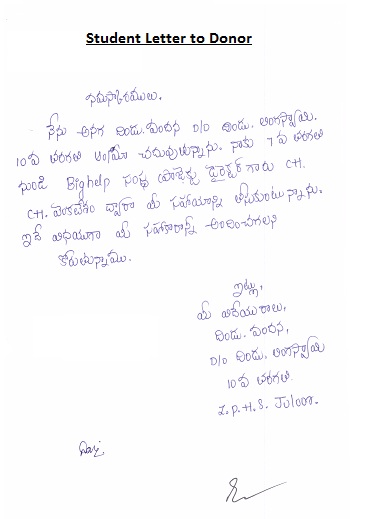 Student Letter to Donor
నమస్కారములు.
నేను అనగా దిండు. వందన D/O దిండు. లింగస్వామి.
10వ తరగతి చదువుతున్నాను. నాకు 7వ తరగతి
నుండి Bighelp సంస్థ ప్రాజెక్టు డైరెక్టర్ గారు CH.
CH. వెంకటేశం ద్వారా మీ సహాయాన్ని తీసుకుంటున్నాను.
ఇదే విధముగా మీ సహకారాన్ని అందించగలని
కోరుతున్నాము.
ఇట్లు,
మీ విధేయురాలు,
దిండు. వందన,
D/O దిండు. లింగస్వామి
10వ తరగతి
Z.P.H.S. Juloor.